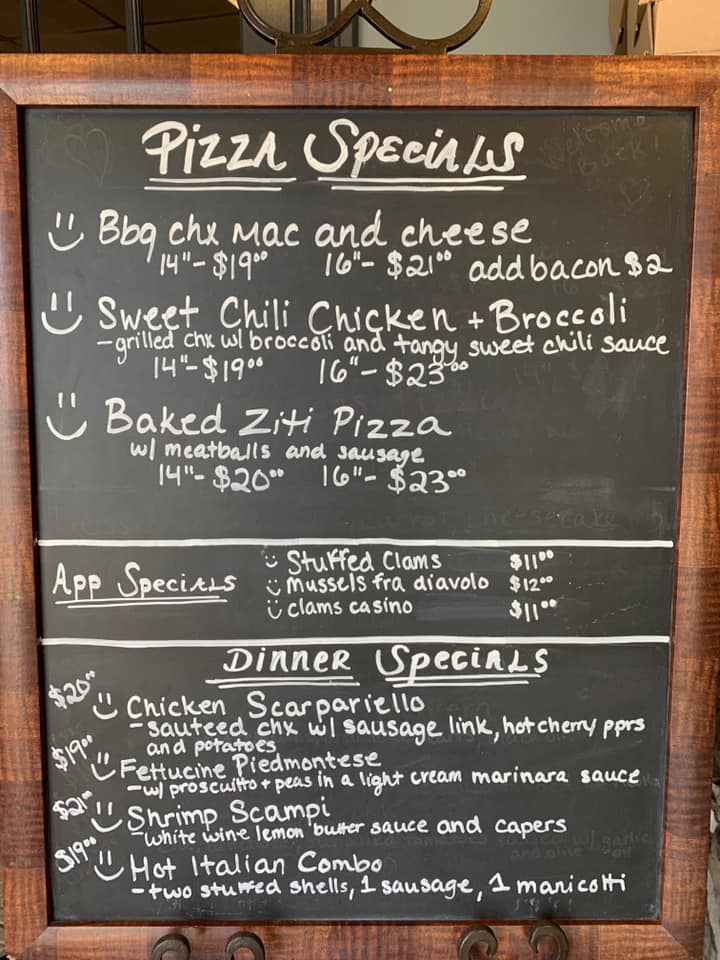 Pizza Specials
Welcome
Back!
Bbq chx Mac and cheese
14"-$19⁰⁰ 16"- $21⁰⁰ add bacon $2
Sweet Chili Chicken + Broccoli
-grilled chx w/ broccoli and tangy sweet chili sauce
14"-$19⁰⁰ 16"-$23⁰⁰
Baked Ziti Pizza
w/ meatballs and sausage
14"-$20⁰⁰ 16"-$23⁰⁰
App Specials
Stuffed Clams $11⁰⁰
mussels fra diavolo $12⁰⁰
clams casino $11⁰⁰
Dinner Specials
$20⁰⁰ Chicken Scarpariello
-sauteed chx w/ sausage link, hot cherry pprs
and potatoes
$19⁰⁰ Fettucine Piedmontese
-w/ proscuitto + peas in a light cream marinara sauce
$21⁰⁰ Shrimp Scampi
-white wine lemon butter sauce and capers
$19⁰⁰ Hot Italian Combo
-two stuffed shells, 1 sausage, 1 manicotti